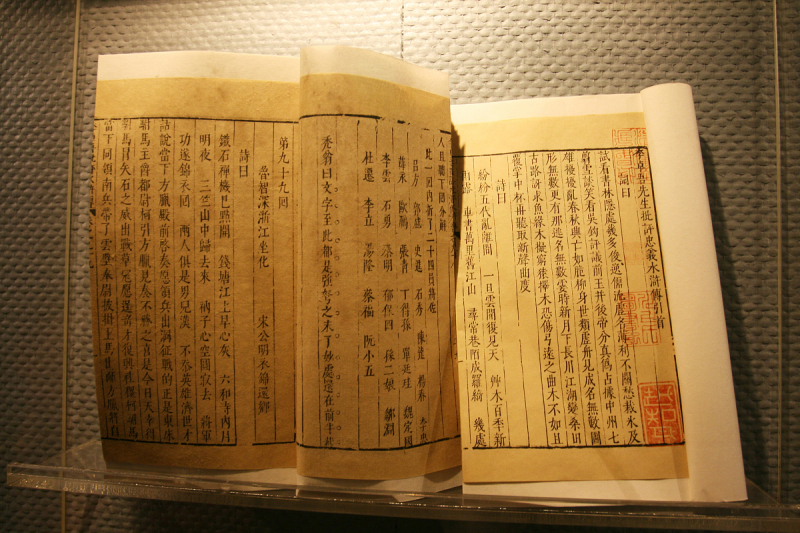 李卓吾先生批評忠義水滸傳引首
詞曰
試看書林隱處幾多俊逸儒流虛名薄利不關愁裁冰及
剪雪談笑看吳鈎評議前王并後帝分真偽占據中州七
雄擾擾亂春秋興亡如脆柳身世類虛舟見成名無數圖
形無數更有那逃名無數霎時新月下長川江湖變桑田
古路訝求魚緣木擬窮猿擇木恐傷弓遠之曲木不如且
覆掌中杯再聽取新聲曲度
詩曰
紛紛五代亂離間 一旦雲開復見天 艸木百年新
雨露 車書萬里舊江山 尋常巷陌陳羅綺 幾處
人且聽下回分解
此一回內折了二十四員將佐
呂方 郭盛 史進 石秀 陳達 楊春
薛永 歐鵬 張青 丁得孫 單廷珪 魏定國
李雲 石勇 郁保四 孫二娘 鄒淵
杜遷 李立 湯隆 蔡福 阮小五
禿翁曰文字至此都是強弩之末了妙處還在前半截
第九十九回
魯智深浙江坐化 宋公明衣錦還鄉
詩曰
鐵石禪機已點開 錢塘江上早心灰 六和寺內月
明夜 三竺山中歸去來 衲子心空圓寂去 將軍
功遂錦衣回 兩人俱是男兒漢 不忝英雄濟世才
話說當下方臘殿前啓奏愿領兵出洞征戰的正是東床
駙馬主爵都尉柯引方臘見奏不勝之喜是今日天幸得
駙馬冒矢石之威出戰草寇愿逞奇才復興社稷柯駙馬
當下同領南兵帶了雲璧奉尉披掛上馬出師方臘將自